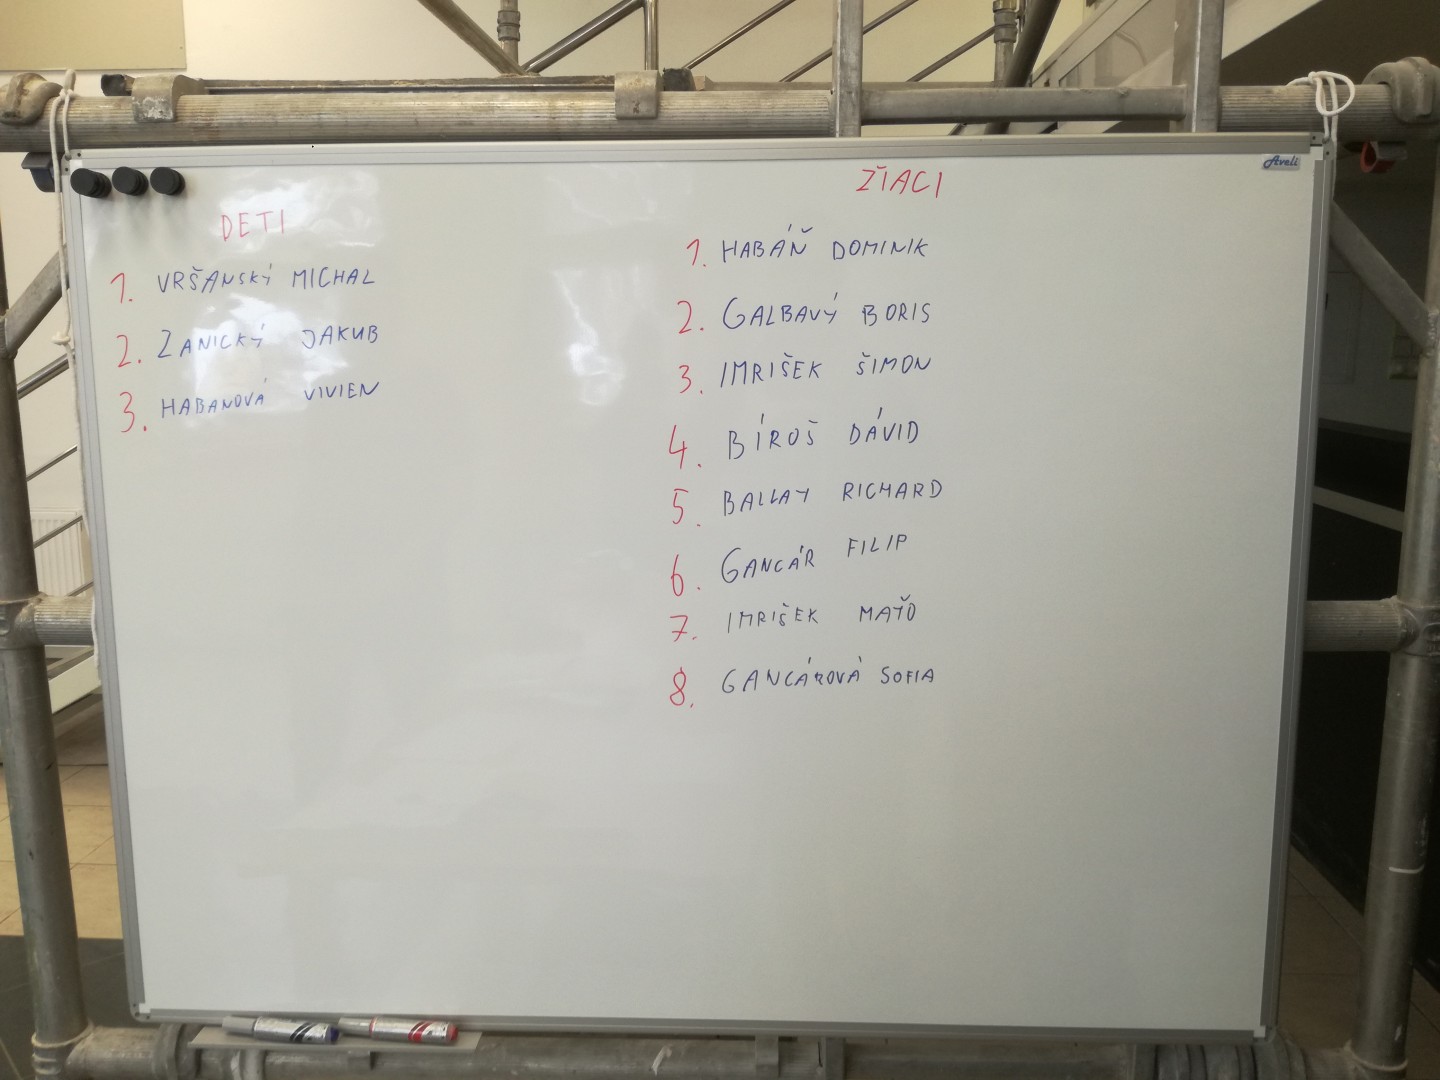 Aveli
DETI
1. VRŠANSKÝ MICHAL
2. ZANICKÝ JAKUB
3. HABANOVÁ VIVIEN
ŽIACI
1. HABÁŇ DOMINIK
2. GALBAVÝ BORIS
3. IMRIŠEK ŠIMON
4. BÍROŠ DÁVID
5. BALLAY RICHARD
6. GANCÁR FILIP
7. IMRIŠEK MAŤO
8. GANCÁROVÁ SOFIA